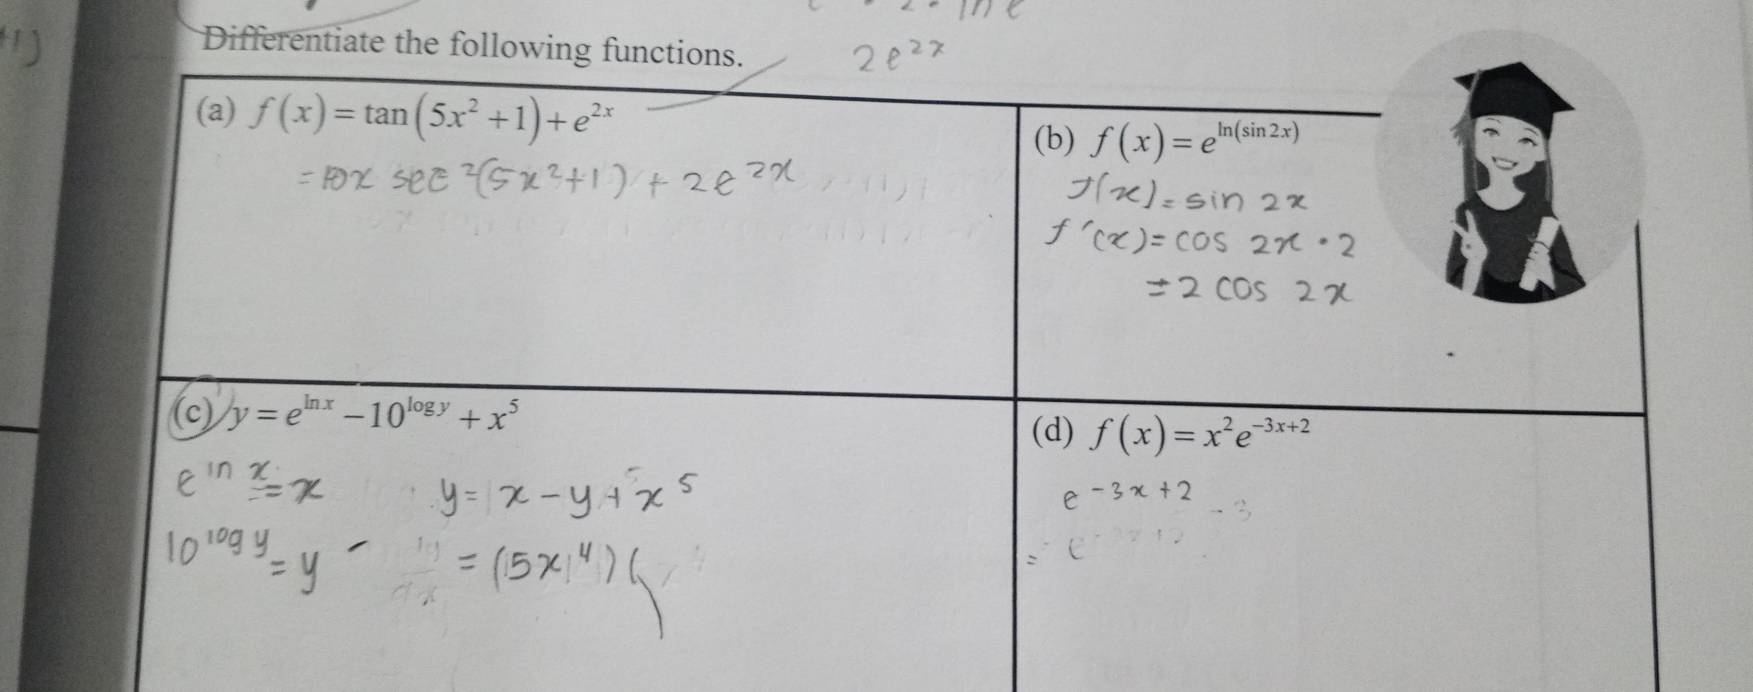 Differentiate the following functions.
2e^{2x}
(a) f(x) = tan(5x² + 1) + e^{2x}
= 10x sec²(5x²+1) + 2e^{2x}
(b) f(x) = e^{ln(sin 2x)}
f(x) = sin 2x
f'(x) = cos 2x · 2
= 2 cos 2x
(c) y = e^{ln x} − 10^{log y} + x⁵
e^{ln x} = x
y = x − y + x⁵
10^{log y} = y
= (5x⁴)(
(d) f(x) = x²e^{−3x+2}
e^{−3x+2}